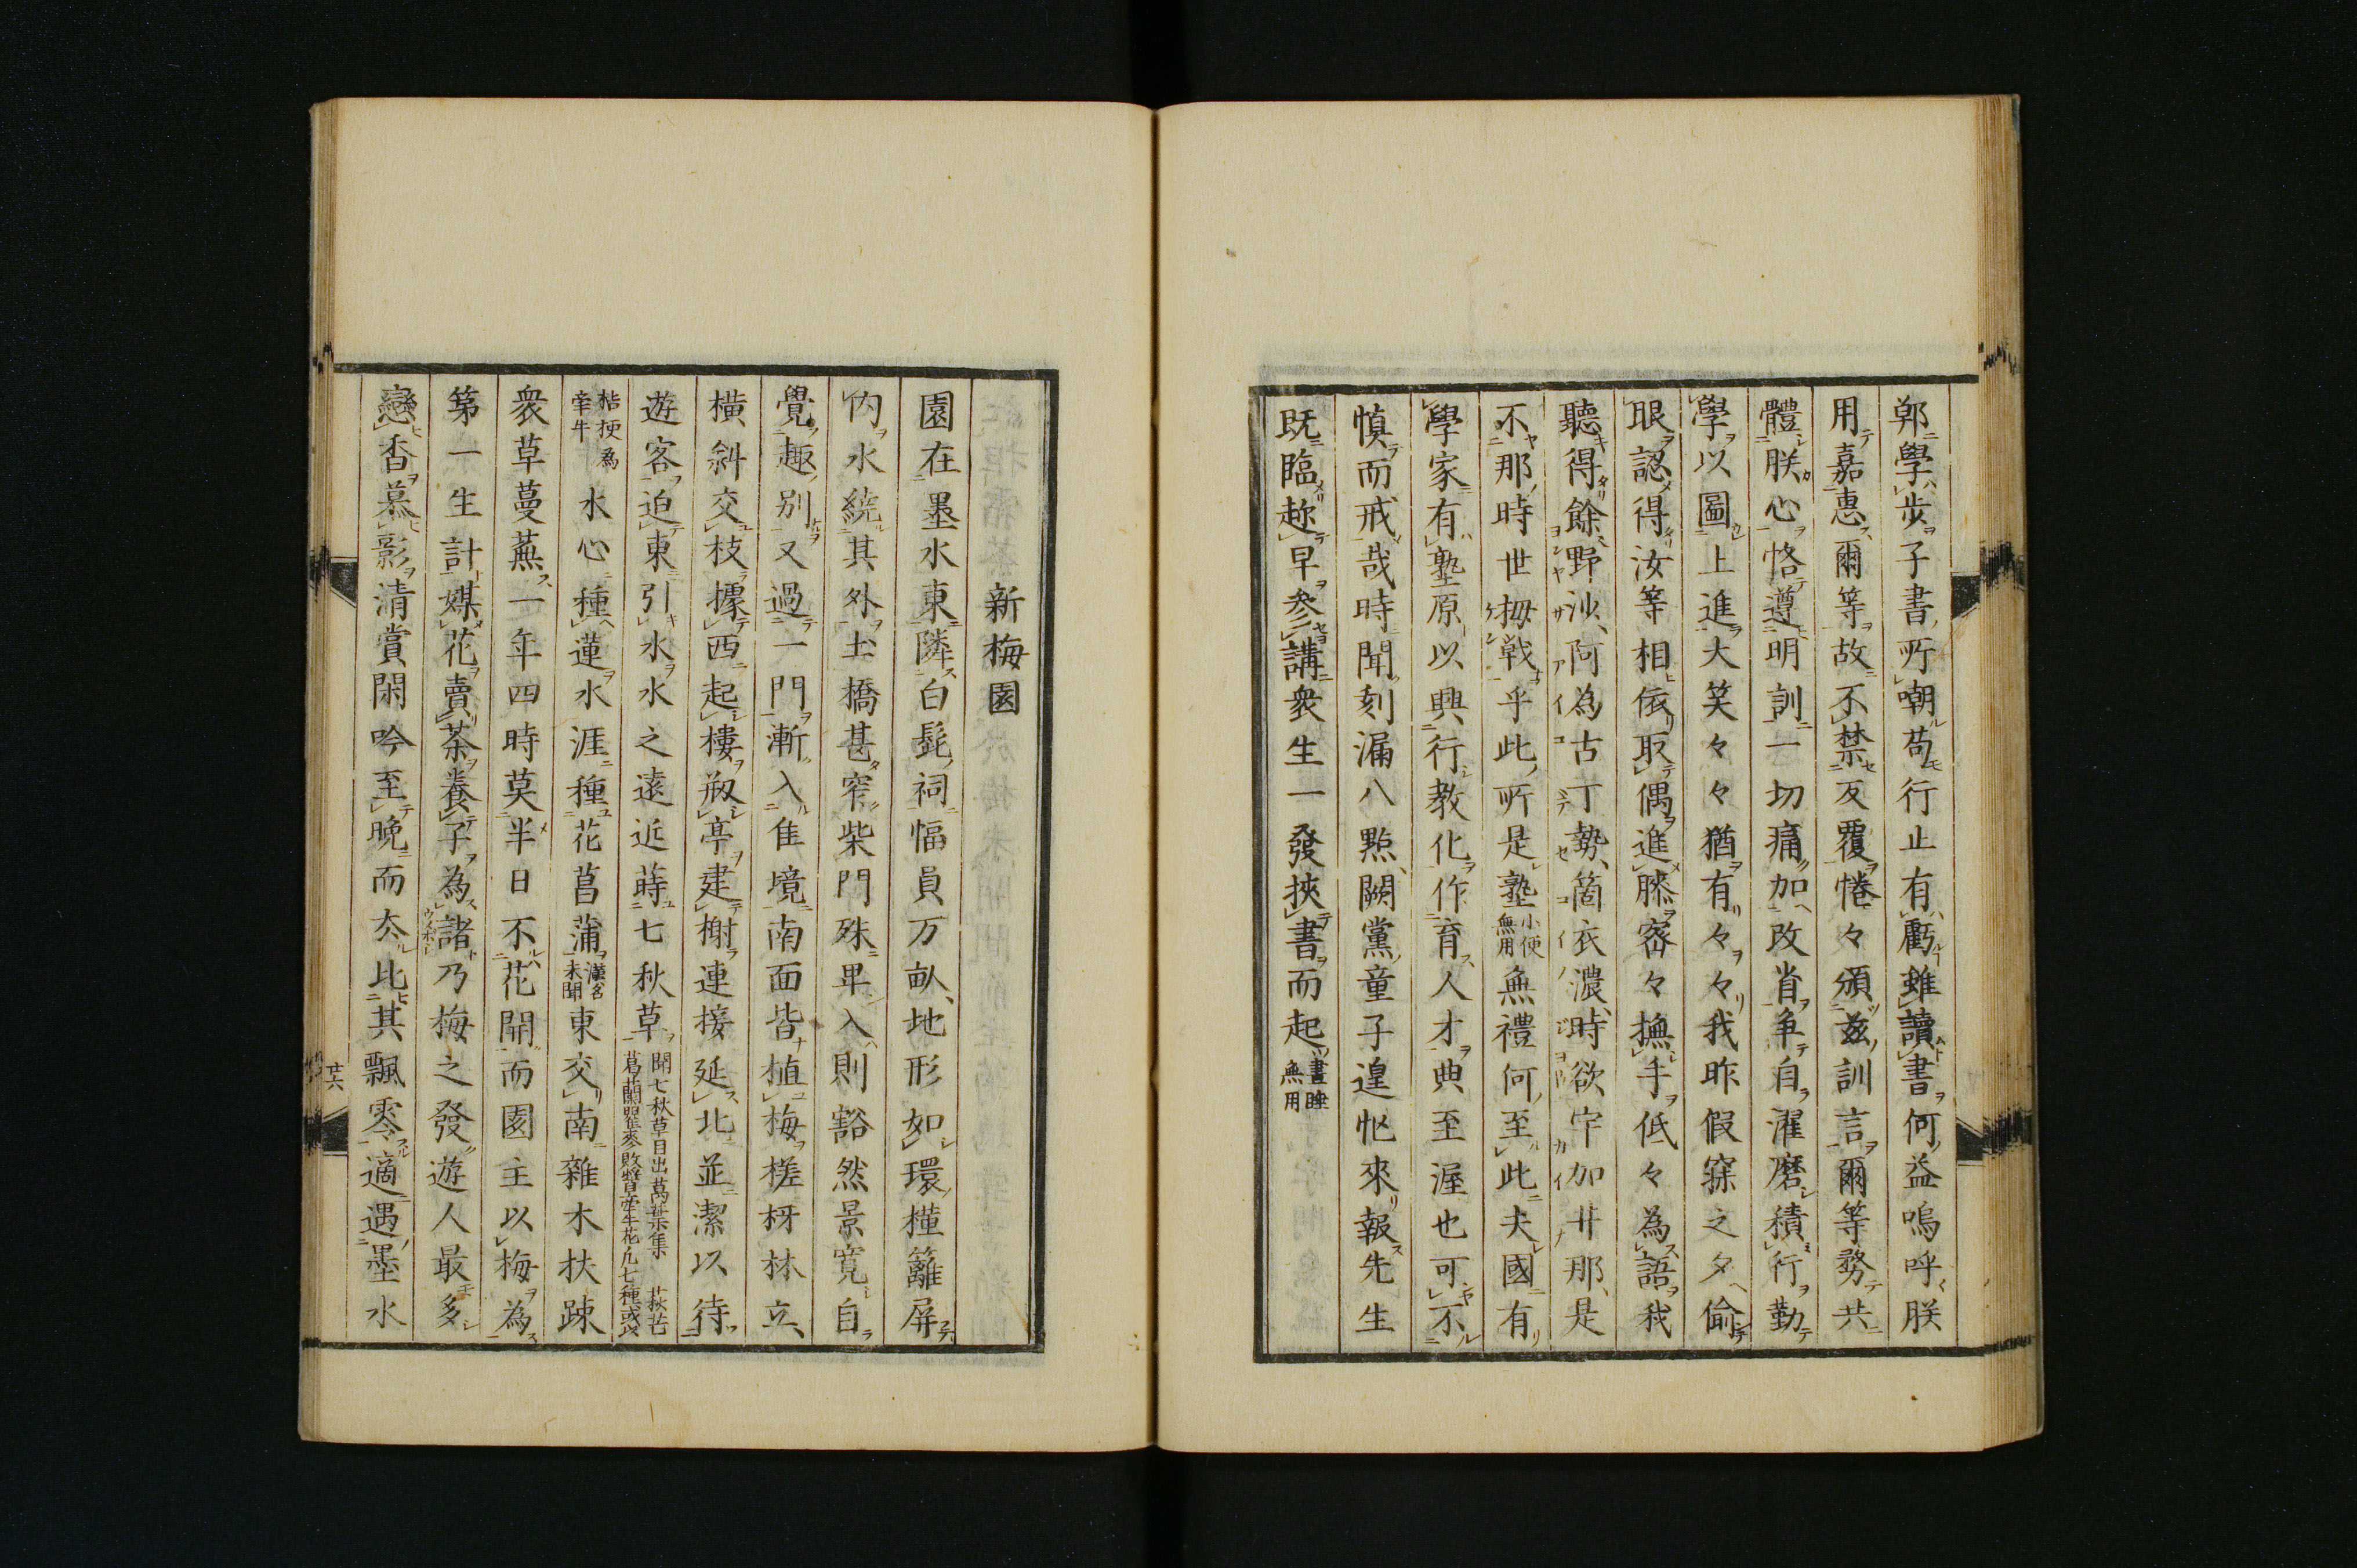 鄣學步子書所嘲苟行止有虧雖讀書何益嗚呼朕
用嘉惠爾等故不禁反覆惓々頒茲訓言爾等務共
體朕心恪遵明訓一切痛加改省争自濯磨積行勤
學以圖上進大笑々々猶有々々我昨假寐之夕偷
眼認得汝等相依取偶進膝密々撫手低々為語我
聽得餘野沙、阿為古丁勢、箇衣濃、時欲宇加廿那、是
不那時世拇戦乎此所是塾小便無用無禮何至此夫國有
學家有塾原以興行教化作育人才典至渥也可不
慎而戒哉時聞刻漏八點、闕黨童子遑忙來報先生
既臨趂早参講衆生一發挾書而起晝睡無用
新梅園
園在墨水東隣白髭祠幅員万畝、地形如環槿籬屏
內水繞其外土橋甚窄柴門殊卑入則豁然景寛自
覺趣別又過一門漸入佳境南面皆植梅槎枒林立、
横斜交枝據西起樓敞亭建榭連接延北並潔以待
遊客迫東引水水之遠近蒔七秋草聞七秋草目出萬葉集 萩芒葛蘭瞿麥敗醬牽牛花凡七種或以
桔梗為牽牛水心種蓮水涯種花菖蒲漢名未聞東交南雜木扶踈
衆草蔓蕪一年四時莫半日不花開而園主以梅為
第一生計媒花賣茶養子為諸乃梅之發遊人最多
戀香慕影清賞閑吟至晩而厺比其飄零適遇墨水
廿六